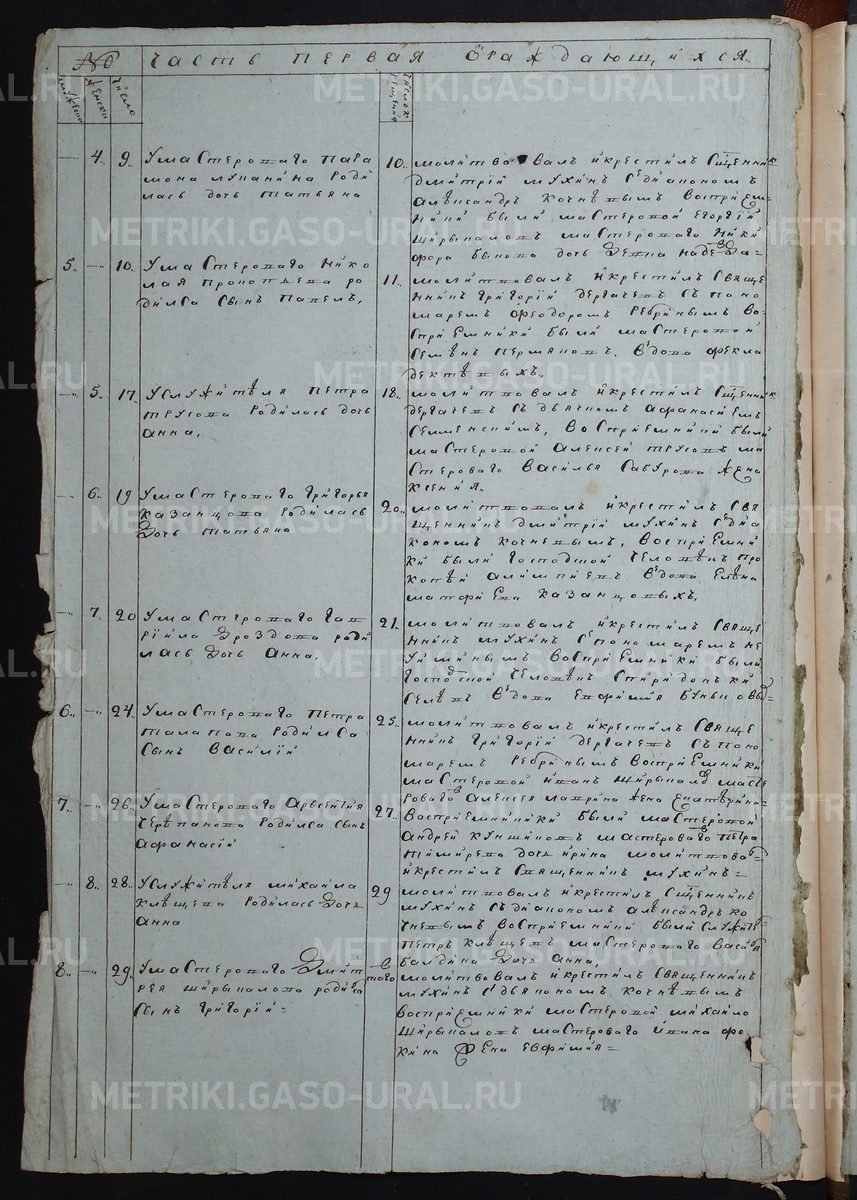 № Часть первая ораждающихся.
мужеска женска число число крещения
4. 9. У мастероваго Пара
мона Лупанина роди
лась дочь Татьяна
10. молитвовалъ и крестилъ Сщенник
Димитрий Мухинъ с диаконом
Александръ Кочневымъ восприем
ники были мастеровой Егоргий
Ширыкаловъ мастероваго Ники
фора дочь девка Надежда
5. 10. У мастероваго Нико
лая родился сынъ Павелъ,
11. молитвовалъ и крестилъ Свяще
нникъ Григорий Дергачевъ с поно
маремъ Феодоромъ Ребринымъ во
сприемники были мастеровой
Семенъ Пермяковъ, вдова Фекла
5. 17. У служителя Петра
Трусова родилась дочь
Анна,
18. молитвовалъ и крестилъ Сщенник
Дергачевъ с дьячкомъ Афанасиемъ
восприемники были
мастеровой Алексей Трусовъ ма
стероваго Василья Сабурова жена
Ксения.
6. 19 У мастероваго Григорья
Казанцова родилась
дочь Татьяна
20. молитвовалъ и крестилъ Свя
щенникъ Димитрий Мухинъ с диа
кономъ Кочневымъ, восприемни
ки были господской человекъ Про
копей вдова Елена
Казанцовыхъ,
7. 20 У мастероваго Гав
риила Дроздова роди
лась дочь Анна,
21. молитвовалъ и крестилъ Свяще
нникъ Мухинъ с пономаремъ Не
уйминымъ восприемники были
господской человекъ Спиридонъ Ки
селевъ вдова Евфимия
6. 24. У мастероваго Петра
Талапова родился
сынъ Василий
25. молитвовалъ и крестилъ Свяще
нникъ Григорий Дергачевъ с поно
маремъ Ребринымъ восприемники
мастеровой Иванъ Ширыкаловъ масте
роваго Алексея жена Екатерина
7. 26. У мастероваго Арсентия
Черепанова родился сынъ
Афанасий
27. восприемники были мастеровой
Андрей Кукшиновъ мастероваго Петра
дочь Ирина молитвовалъ
и крестилъ Священникъ Мухинъ
8. 28. У служителя Михайла
Клещева родилась дочь
Анна
29 молитвовалъ и крестилъ Сщенникъ
Мухинъ с диакономъ Александръ Ко
чневымъ восприемники были служитель
Петръ Клещевъ мастероваго Василья
Балдина дочь Анна,
8. 29. У мастероваго Дмит
рея Ширыкалова родился
сынъ Григорий
того молитвовалъ и крестилъ Священникъ
Мухинъ с дьякономъ Кочневымъ
восприемники мастеровой Михайло
Ширыкаловъ мастероваго Ивана Фо
кина жена Евфимия
METRIKI.GASO-URAL.RU